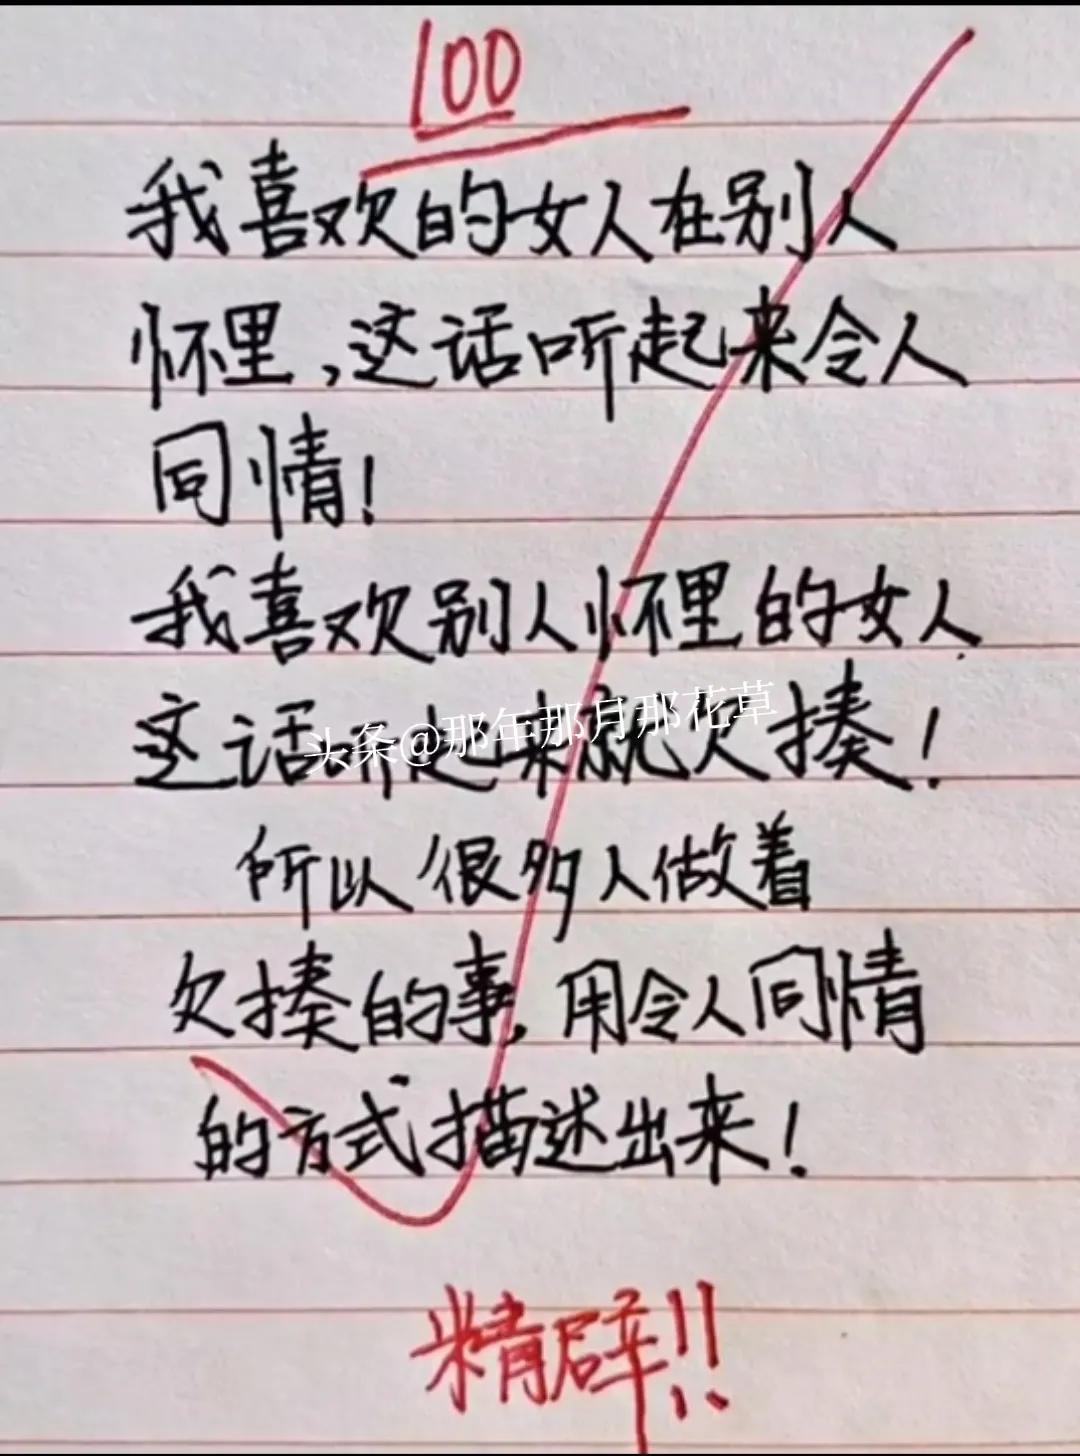 100
我喜欢的女人在别人
怀里,这话听起来令人
同情!
我喜欢别人怀里的女人.
这话听起来就欠揍!
头条@那年那月那花草
所以很多人做着
欠揍的事,用令人同情
的方式描述出来!
精辟!!